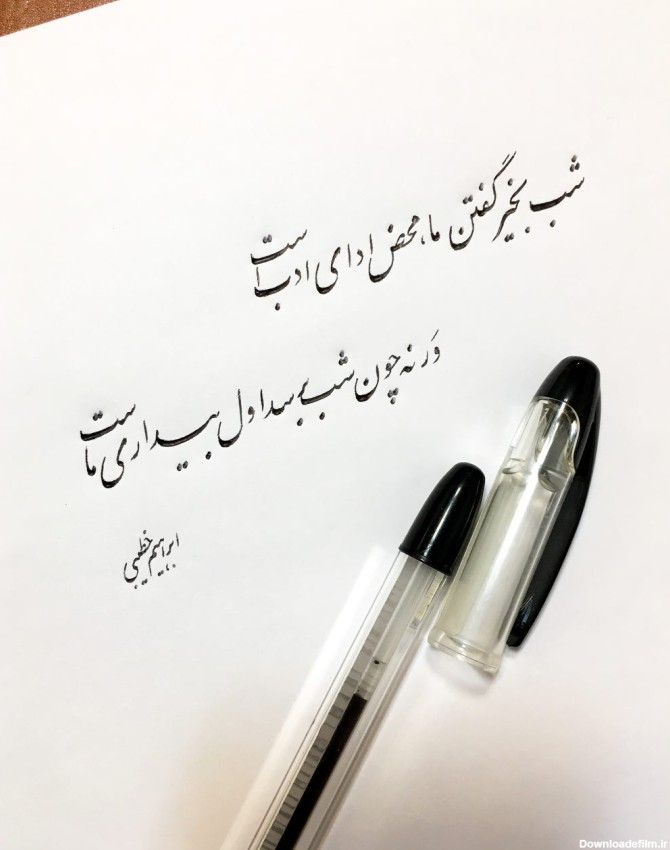 شب بخیر گفتن ما، محض ادای ادب است
وَرنه چون شب برسد اول بیداری ماست
ابراهیم خطیبی
Downloadefilm.ir